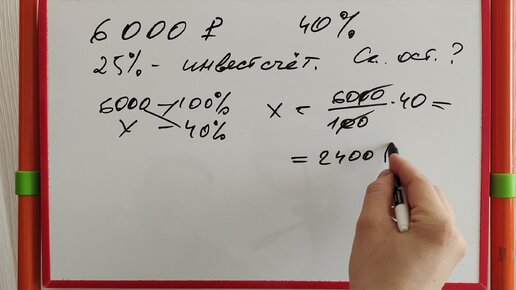 6000 ₽ 40%
25% - инвестсчёт. Ск. ост.?
6000 - 100%
x - 40%
x = 6000/100 · 40 =
= 2400